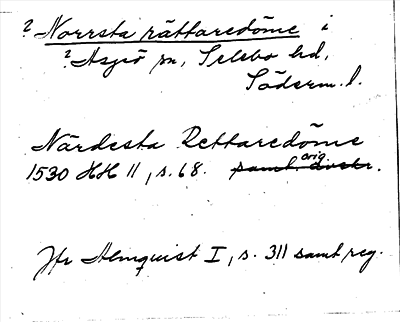 ? Norrsta rättaredöme i
? Åsjö sn, Selebo hd,
Söderm. l.
Närdesta Rettaredöme
orig.
1530 HH 11, s. 68. samt avskr.
Jfr Almquist I, s. 311 samt reg.